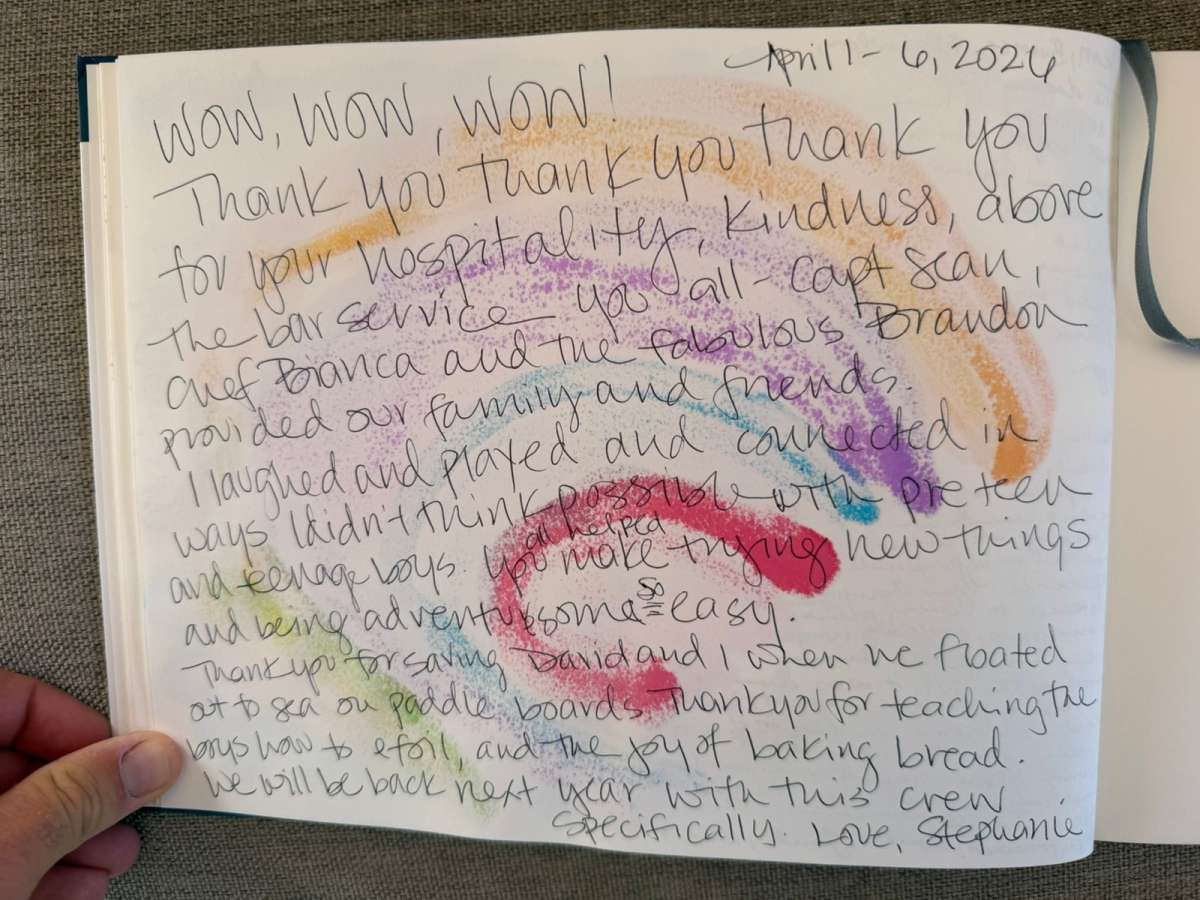 April 1 - 6, 2026
WOW, WOW, WOW!
Thank you thank you thank you
for your hospitality, kindness, above
the bar service you all - Capt Sean,
Chef Bianca and the fabulous Brandon
provided our family and friends.
I laughed and played and connected in
ways I didn't think possible with preteen
and teenage boys. You all helped make trying new things
and being adventuresome so easy.
Thank you for saving David and I when we floated
out to sea on paddle boards. Thank you for teaching the
boys how to efoil, and the joy of baking bread.
We will be back next year with this crew
specifically. Love, Stephanie